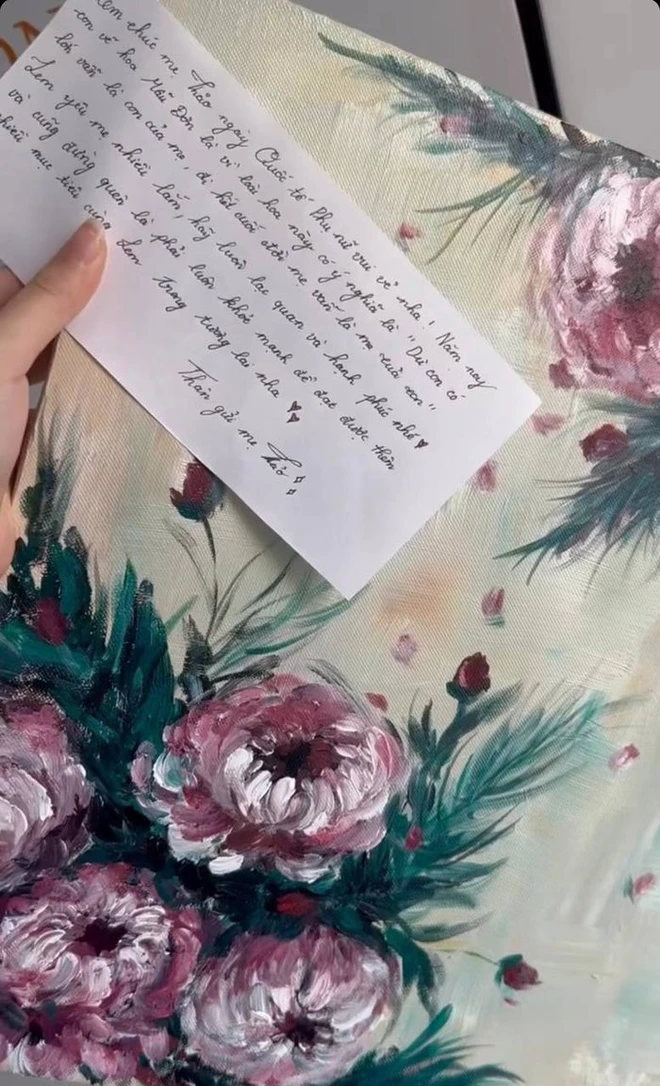 Lem chúc mẹ Thảo ngày Quốc tế Phụ nữ vui vẻ nha! Năm nay
con vẽ hoa Mẫu Đơn là vì loài hoa này có ý nghĩa là "Dù con có
lớn vẫn là con của mẹ, đi hết cuộc đời mẹ vẫn là mẹ của con"
Lem yêu mẹ nhiều lắm, hãy luôn lạc quan và hạnh phúc nhé
và cũng đừng quên là phải luôn khỏe mạnh để đạt được thêm
nhiều mục tiêu cùng Lem trong tương lai nha
Thân gửi mẹ Thảo